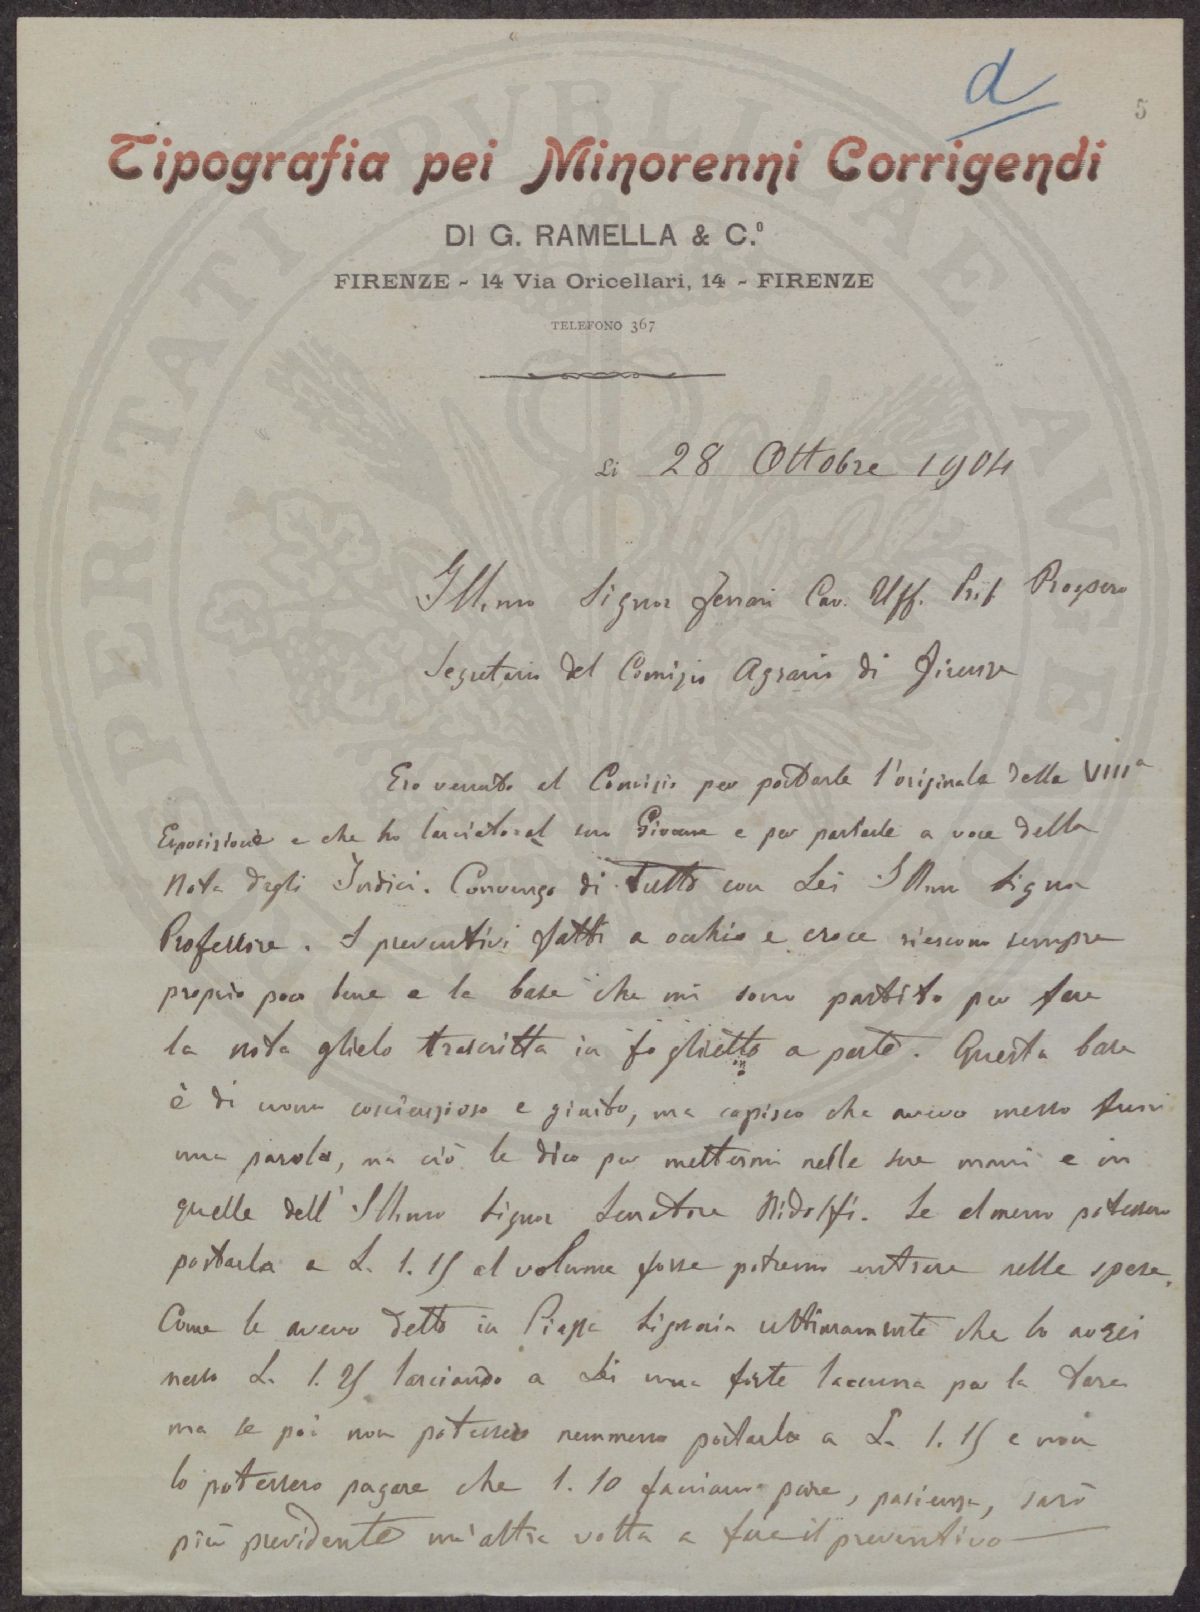 d
5
Tipografia pei Minorenni Corrigendi
DI G. RAMELLA & C.º
FIRENZE - 14 Via Oricellari, 14 - FIRENZE
TELEFONO 367
Li 28 Ottobre 1904
Illmo Signor Ferrari Cav. Uff. Prof Prospero
Segretario del Comizio Agrario di Firenze
Ero venuto al Comizio per portarle l'originale della VIIIª
Esposizione e che ho lasciato al suo Giovane e per parlarle a voce della
Nota degli Indici. Convengo di tutto con Lei Illmo Signor
Professore. I preventivi fatti a occhio e croce riescono sempre
proprio poco bene e la base che mi sono partito per fare
la nota glielo trascritta in foglietto a parte. Questa base
è di uomo coscienzioso e giusto, ma capisco che avevo messo fuori
una parola, ma ciò le dico per mettermi nelle sue mani e in
quelle dell' Illmo Signor Senatore Ridolfi. Se almeno potessero
portarla a L. 1.15 al volume forse potremo entrare nelle spese.
Come le avevo detto in Piazza Signoria ultimamente che lo avrei
messo L. 1.25 lasciando a Lei una forte lacuna per la tara
ma se poi non potessero nemmeno portarla a L. 1.15 e non
lo potessero pagare che 1.10 facciamo pure, pazienza, sarò
più previdente un'altra volta a fare il preventivo